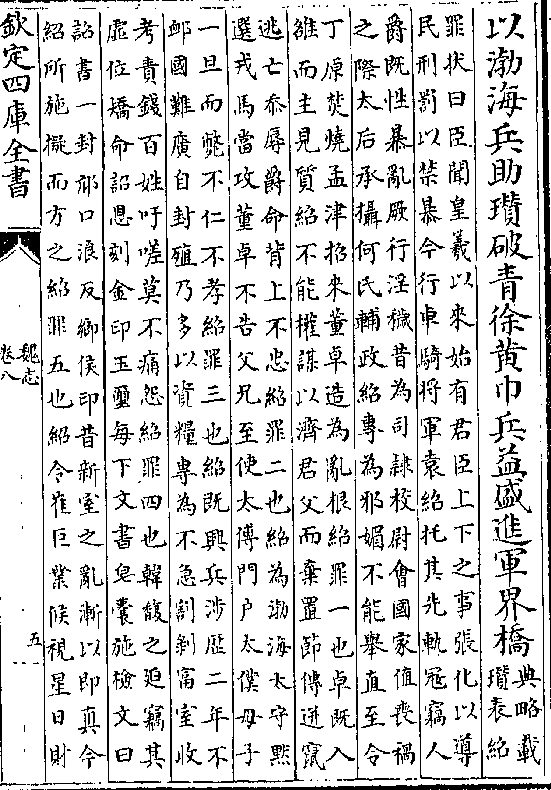 以渤海兵助瓚破青徐黃巾兵益盛進軍界橋典略載
瓚表紹
罪狀曰臣聞皇羲以來始有君臣上下之事張化以導
民刑罰以禁暴今行車騎將軍袁紹托其先軌冦竊人
爵既性暴亂厥行淫穢昔為司隸校尉會國家值喪禍
之際太后承攝何氏輔政紹專為邪媚不能舉直至令
丁原焚燒孟津招來董卓造為亂根紹罪一也卓既入
雒而主見質紹不能權謀以濟君父而棄置節傳迸竄
逃亡忝辱爵命背上不忠紹罪二也紹為渤海太守黙
選戎馬當攻董卓不告父兄至使太傅門户太僕母子
一旦而斃不仁不孝紹罪三也紹既興兵涉歴二年不
䘏國難廣自封殖乃多以資糧專為不急割剝富室收
考責錢百姓吁嗟莫不痛怨紹罪四也韓馥之迫竊其
虛位矯命詔恩刻金印玉璽每下文書皂囊施檢文曰
詔書一封邟口浪反鄉侯印昔新室之亂漸以即真今
紹所施擬而方之紹罪五也紹令崔巨業候視星日財
欽定四庫全書
魏志
卷八
五